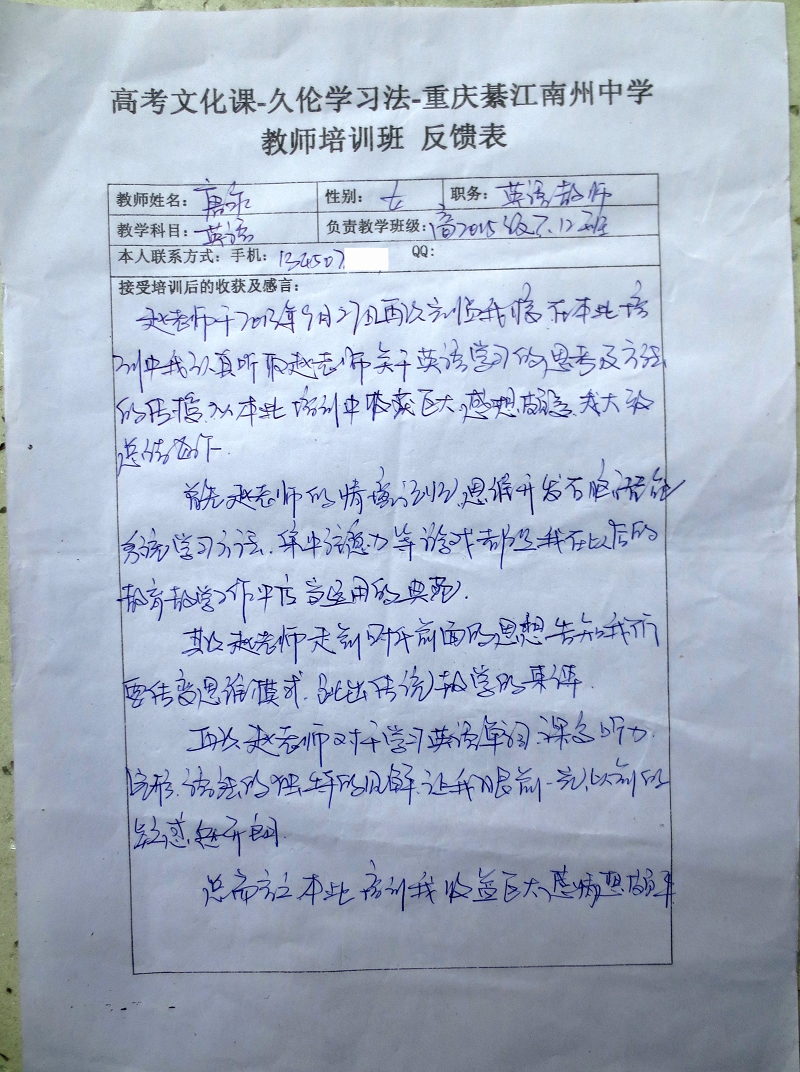 高考文化课-久伦学习法-重庆綦江南州中学
教师培训班 反馈表
教师姓名: 唐 性别: 女 职务: 英语教师
教学科目: 英语 负责教学班级: 高2015级7.12班
本人联系方式: 手机: 134507 QQ:
接受培训后的收获及感言:
赵老师于2013年9月27日再次到临我校.在本此培
训中我认真听取赵老师关于英语学习的思考及方法
的传授.从本此培训中收获巨大.感想颇多.我大致
总结如下
首先赵老师的情境识别.思维开发右脑语言
系统学习方法.集中注意力等游戏都是我在以后的
教育教学工作中应当运用的典范.
其次赵老师走在时代前面的思想告知我们
要转变思维模式.跳出传统教学的束缚.
再次赵老师对于学习英语单词.课文.听力.
完形.语法的独特的见解.让我眼前一亮.以前的
疑惑.开朗.
总而言之本此培训我收益巨大.感想颇丰